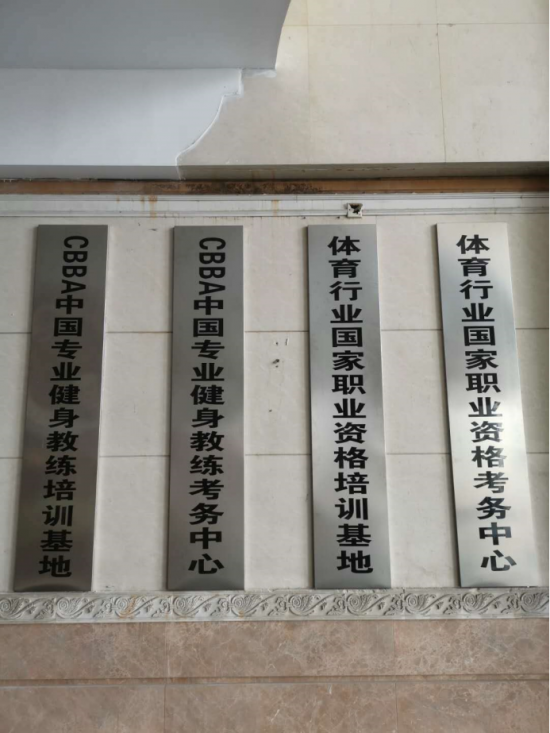 CBBA中国专业健身教练培训基地
CBBA中国专业健身教练考务中心
体育行业国家职业资格培训基地
体育行业国家职业资格考务中心